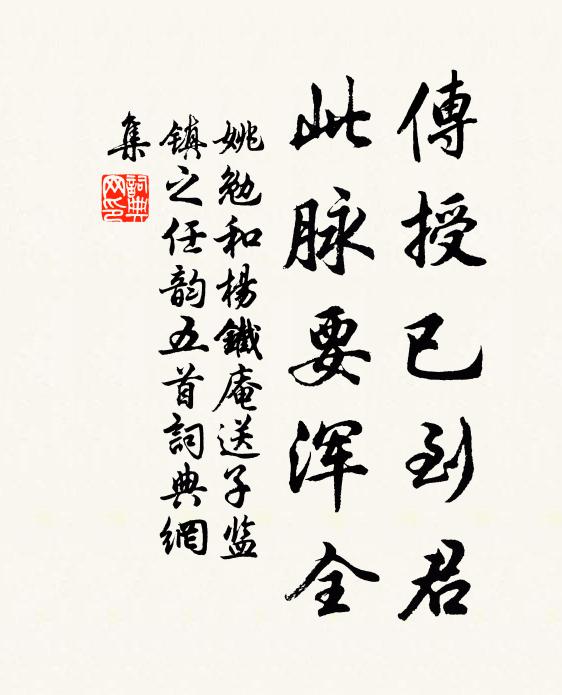 傳授已到君
此脉要浑全
姚勉和楊鐵庵送子监
镇之任韵五首詞典網
集
詞典
网印